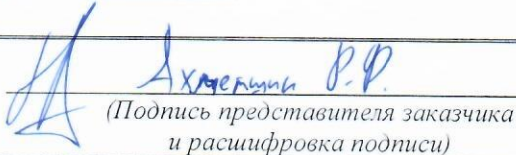 Ахметшин Р.Ф.
(Подпись представителя заказчика
и расшифровка подписи)